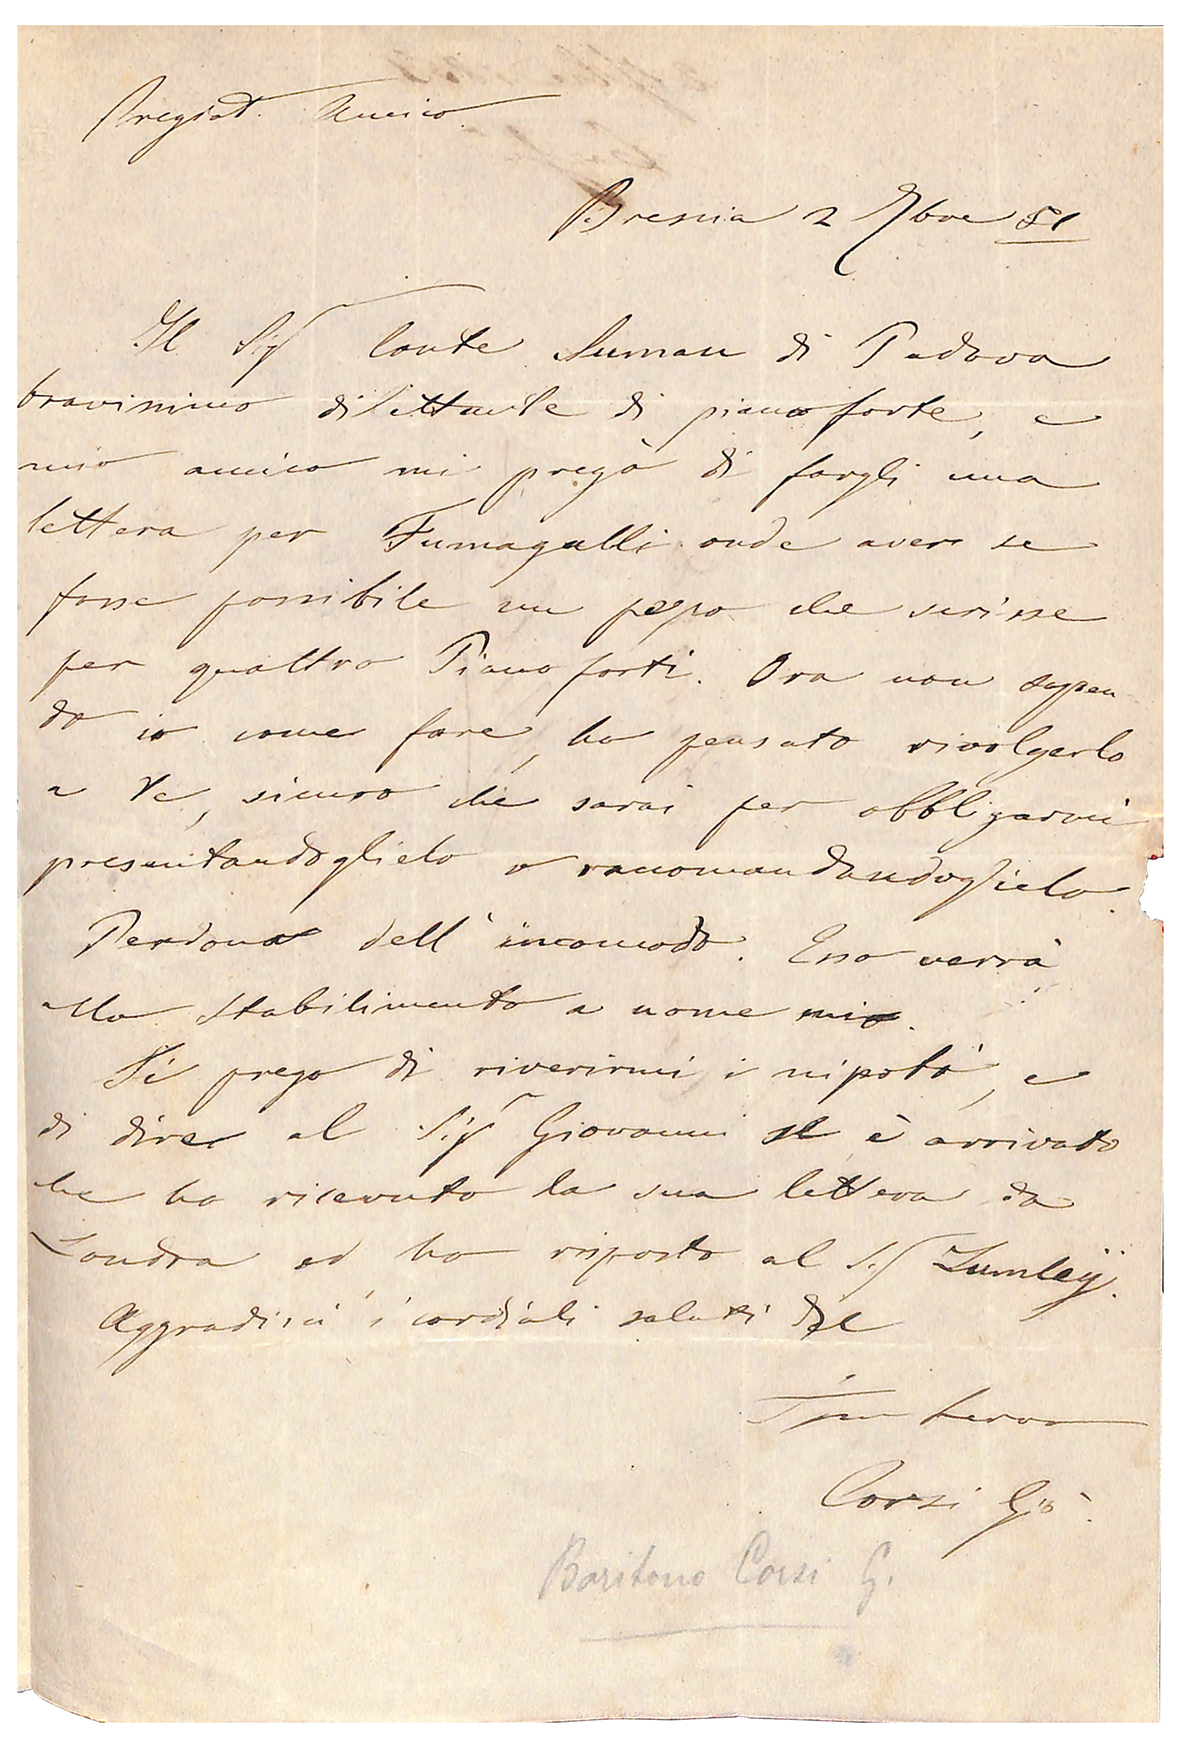 Pregiat. Amico
Brescia 2 7bre 51
Il Sig Conte Suman di Padova
bravissimo dilettante di piano forte, e
mio amico mi pregò di fargli una
lettera per Fumagalli onde aver se
fosse possibile un pezzo che scrisse
per quattro Piano forti. Ora non sapen
do io come fare, ho pensato rivolgerlo
a Te, sicuro che sarai per obbligarmi
presentandoglielo o raccomandandoglielo.
Perdona dell'incomodo. Esso verrà
allo Stabilimento a nome mio.
Ti prego di riverirmi i nipoti, e
di dire al Sig Giovanni se è arrivato
che ho ricevuto la sua lettera da
Londra ed ho risposto al S. Lumley.
Aggradisci i cordiali saluti del
Corsi Gio.
Baritono Corsi G.